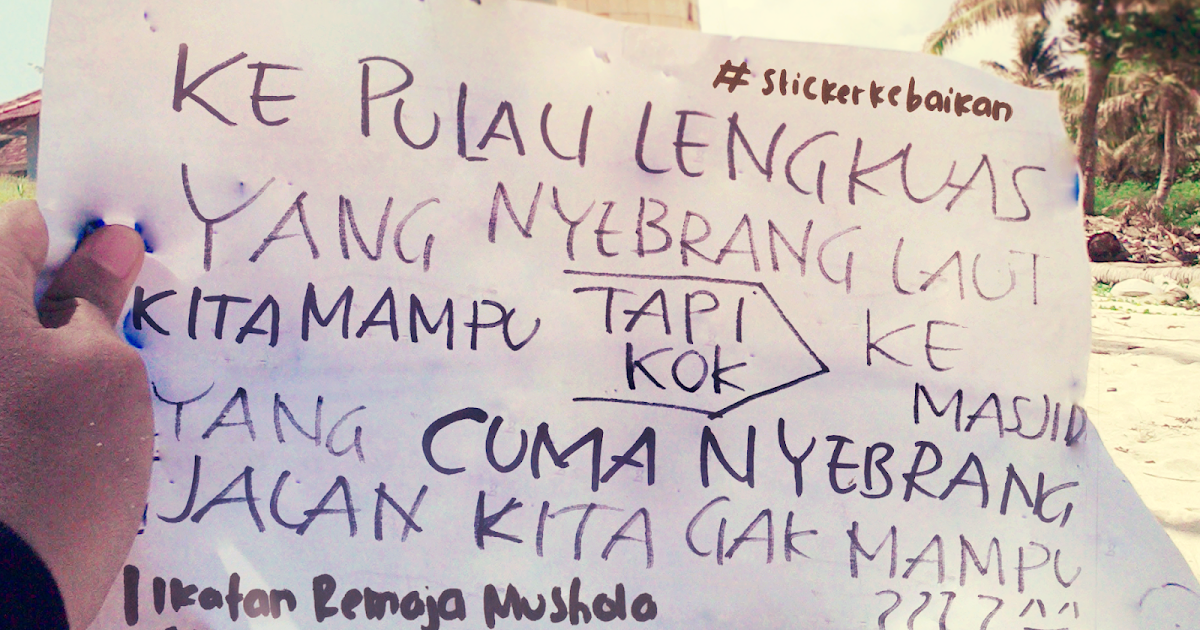 #stickerkebaikan
KE PULAU LENGKUAS
YANG NYEBRANG LAUT
KITA MAMPU TAPI KOK KE
MASJID
YANG CUMA NYEBRANG
JALAN KITA GAK MAMPU
???? ^^
| Ikatan Remaja Mushola